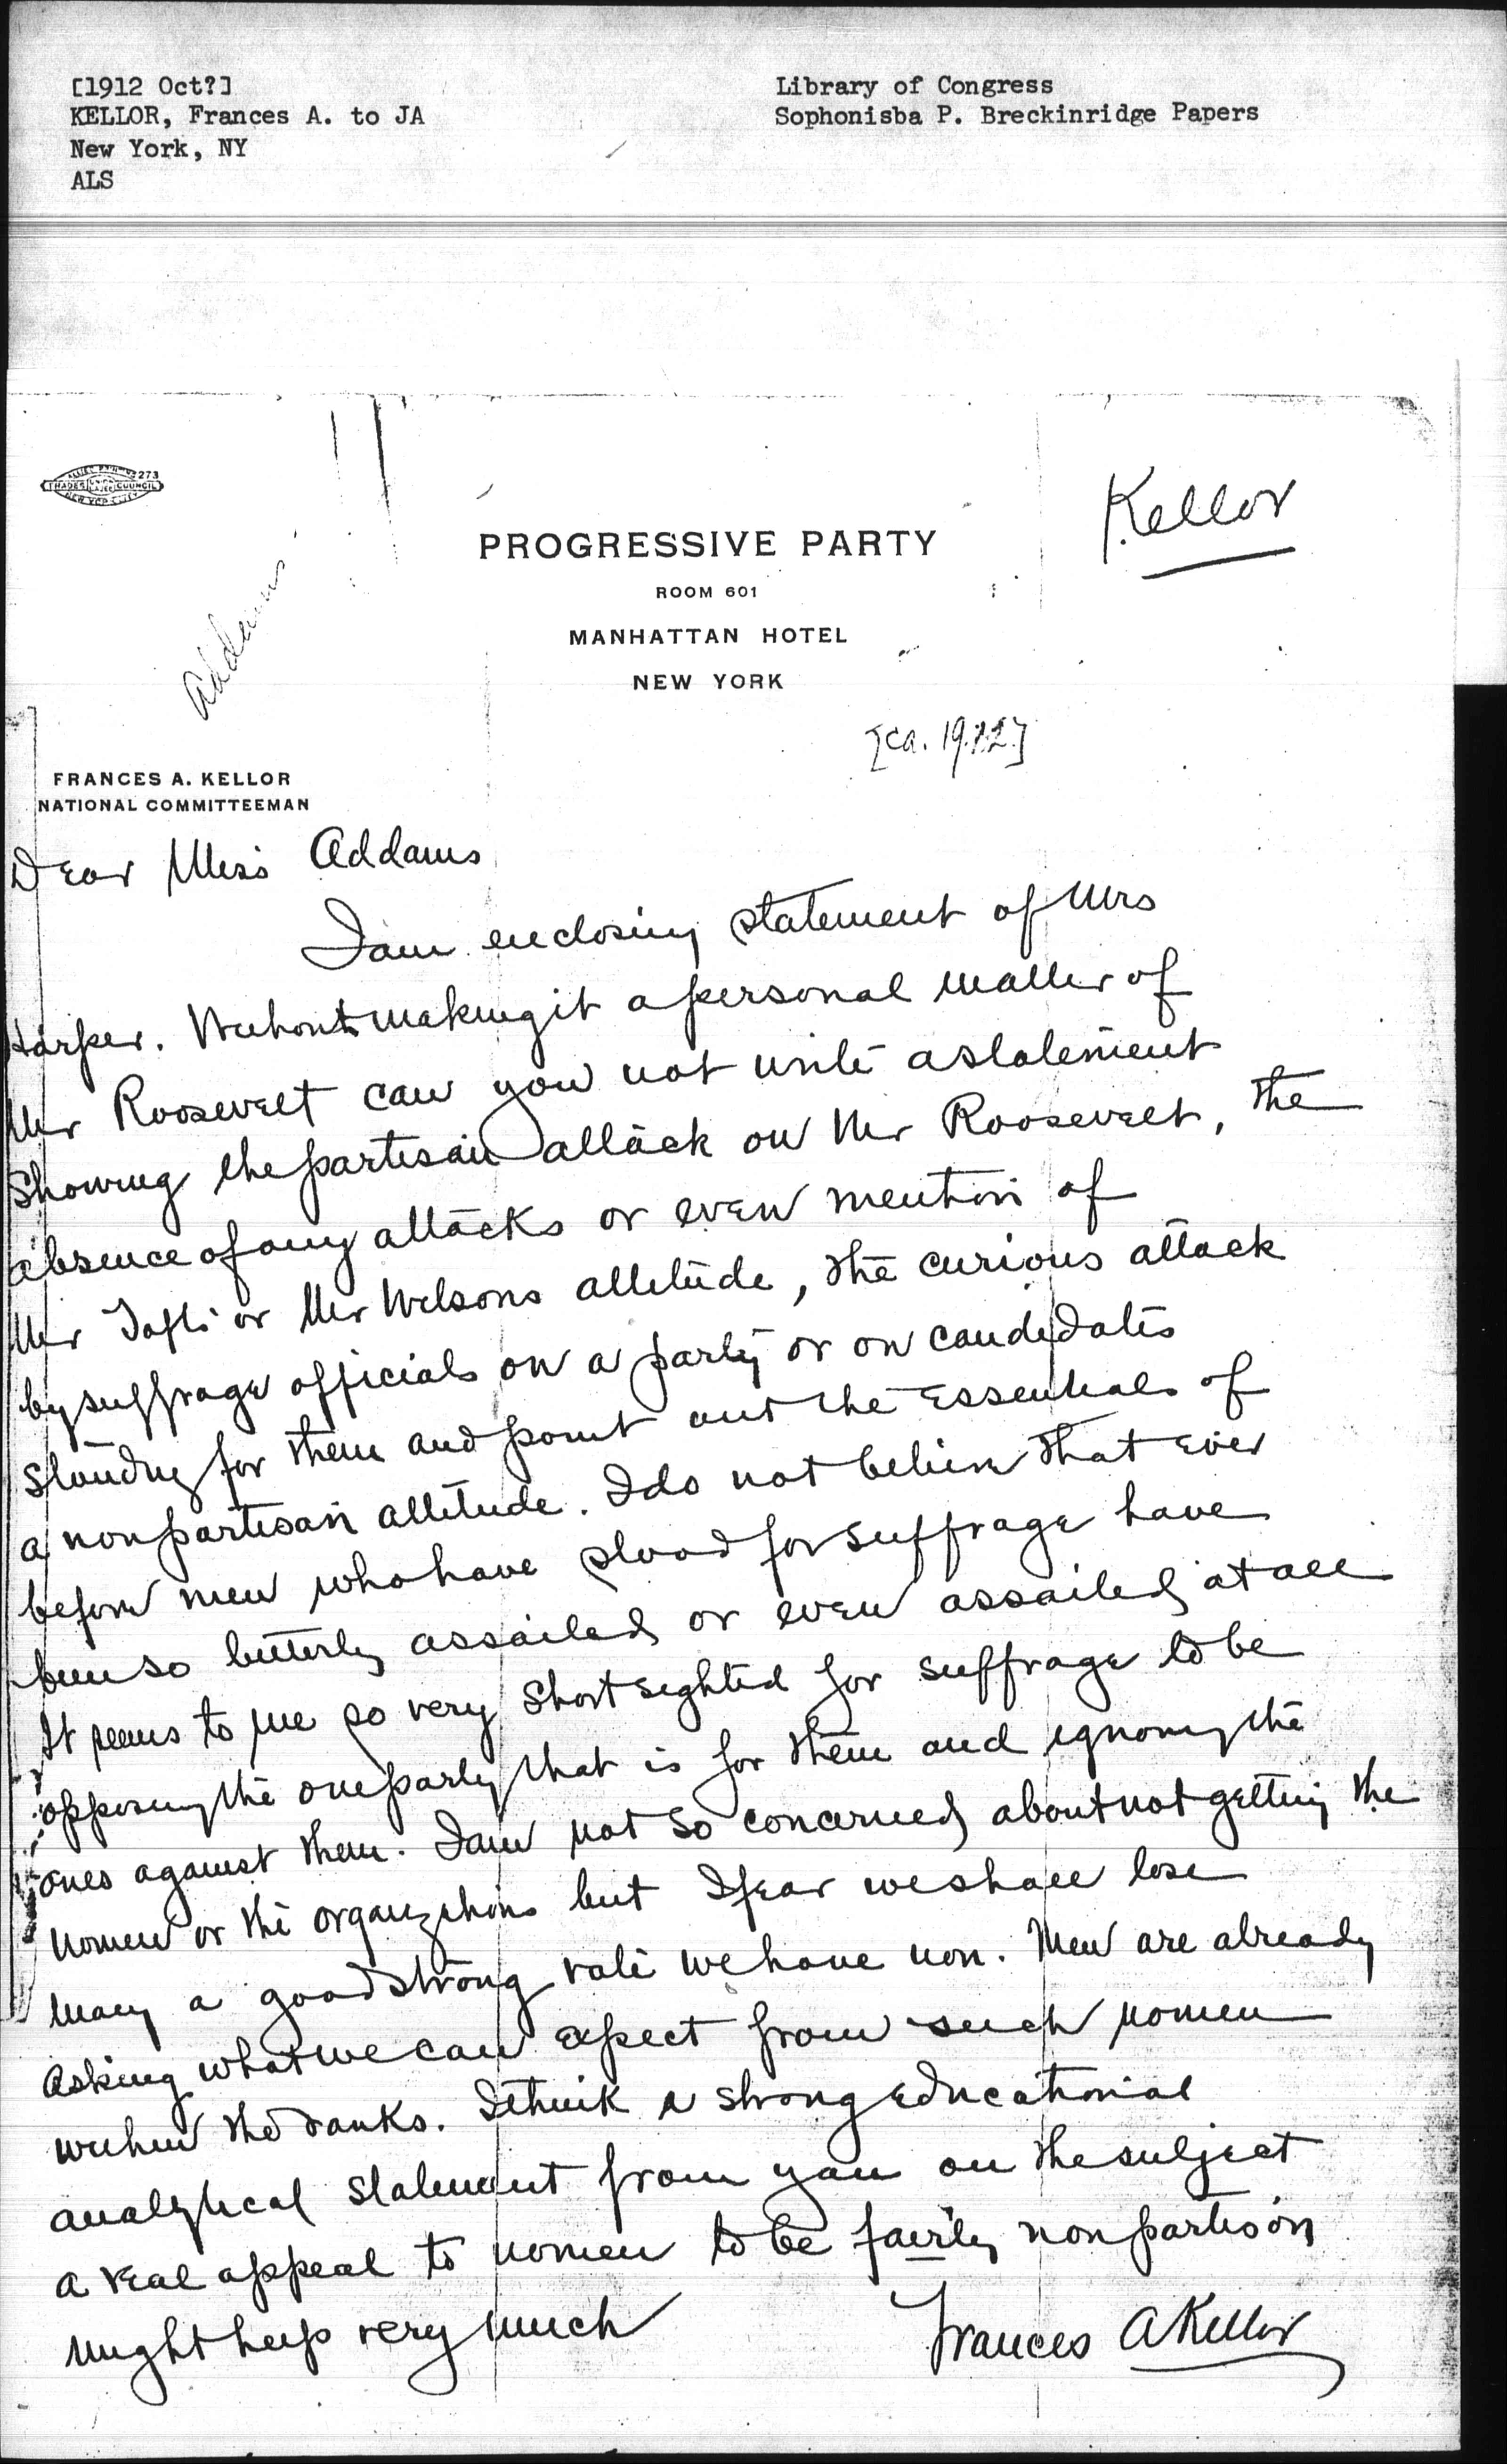 [1912 Oct?]
KELLOR, Frances A. to JA
New York, NY
ALS
Library of Congress
Sophonisba P. Breckinridge Papers
TRADES UNION LABEL COUNCIL 273
Kellor
Addams
PROGRESSIVE PARTY
ROOM 601
MANHATTAN HOTEL
NEW YORK
[ca. 1912]
FRANCES A. KELLOR
NATIONAL COMMITTEEMAN
Dear Miss Addams
I am enclosing statement of Mrs
Harper. Without making it a personal matter of
Mr Roosevelt can you not write a statement
showing the partisan attack on Mr Roosevelt, the
absence of any attacks or even mention of
Mr Tafts or Mr Wilsons attitude, the curious attack
by suffrage officials on a party or on candidates
standing for them and point out the essentials of
a nonpartisan attitude. I do not believe that ever
before men who have stood for suffrage have
been so bitterly assailed or even assailed at all
It seems to me so very shortsighted for suffrage to be
opposing the one party that is for them and ignoring the
ones against them. I am not so concerned about not getting the
women or the organizations but I fear we shall lose
many a good strong vote we have won. Men are already
asking what we can expect from such women
within the ranks. I think a strong educational
analytical statement from you on the subject
a real appeal to women to be fairly nonpartisan
might help very much
Frances A Kellor